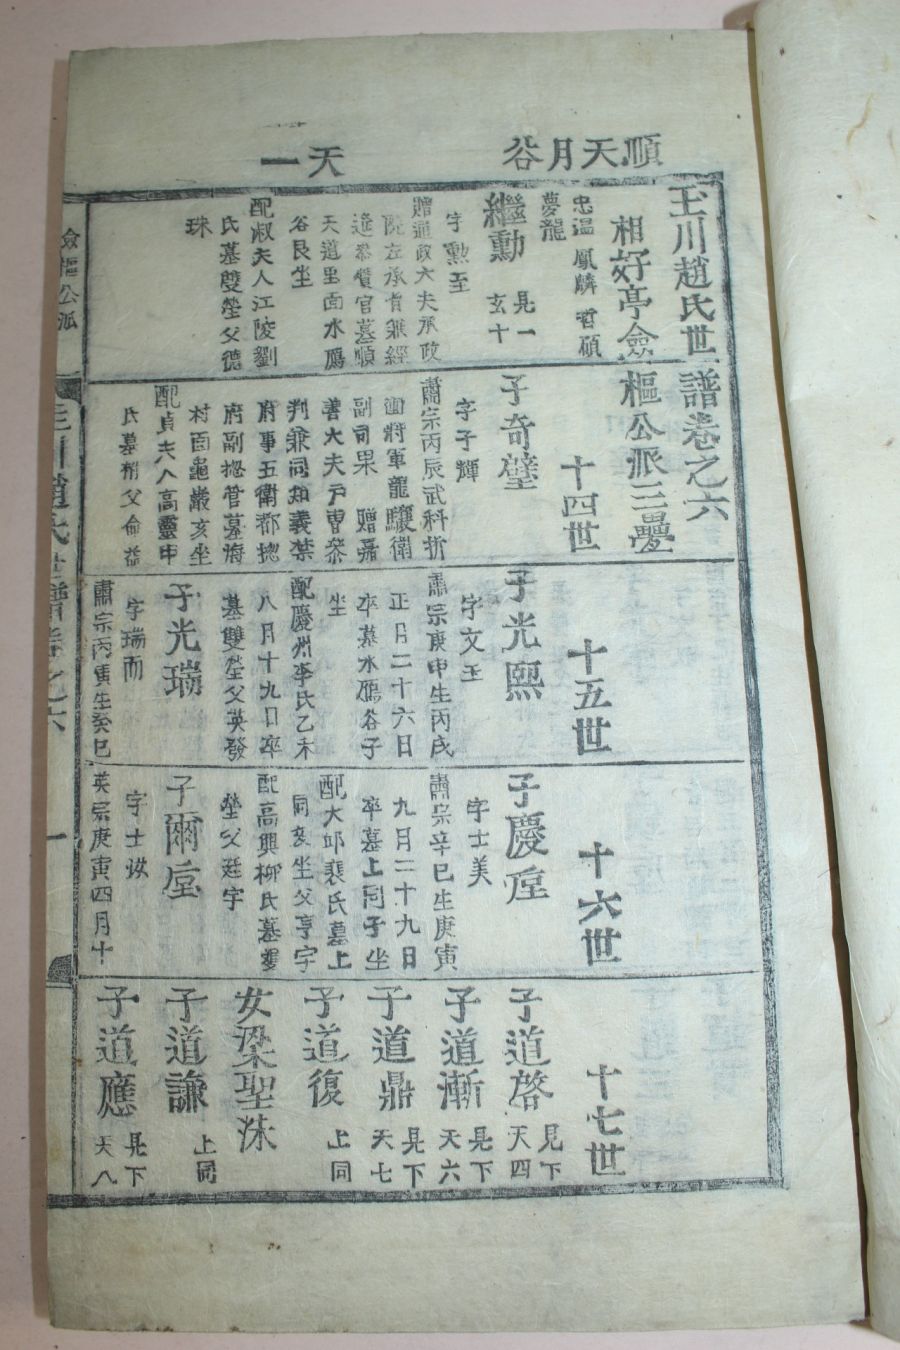 順天月谷
天一
玉川趙氏世譜卷之六
相好亭僉樞公派三疊
忠溫 鳳麟 哲碩
夢龍
繼勳 見一玄十
字勲至
贈通政大夫承政
院左承旨兼經
筵參贊官墓順
天道里面水鴈
谷艮坐
配淑夫人江陵劉
氏墓雙塋父德
珠
十四世
子奇璧
字子輝
肅宗丙辰武科折
衝將軍龍驤衛
副司果 贈嘉
善大夫戶曹參
判兼同知義禁
府事五衛都摠
府副摠管墓海
村面龜巖亥坐
配貞夫人高靈申
氏墓祔父命益
十五世
子光熙
字文玉
肅宗庚申生丙戌
正月二十六日
卒墓水鴈谷子
坐
配慶州李氏乙未
八月十九日卒
墓雙塋父英發
子光瑞
字瑞而
肅宗丙寅生癸巳
十六世
子慶垕
字士美
肅宗辛巳生庚寅
九月二十九日
卒墓上同子坐
配大邱裵氏墓上
同亥坐父亨字
配高興柳氏墓雙
塋父廷字
子爾垕
字士汝
英宗庚寅四月十
十七世
子道啓 見下天四
子道漸 見下天六
子道鼎 見下天七
子道復 上同
女梁聖洙
子道謙 上同
子道應 見下天八
僉樞公派
玉川趙氏世譜卷之六
一